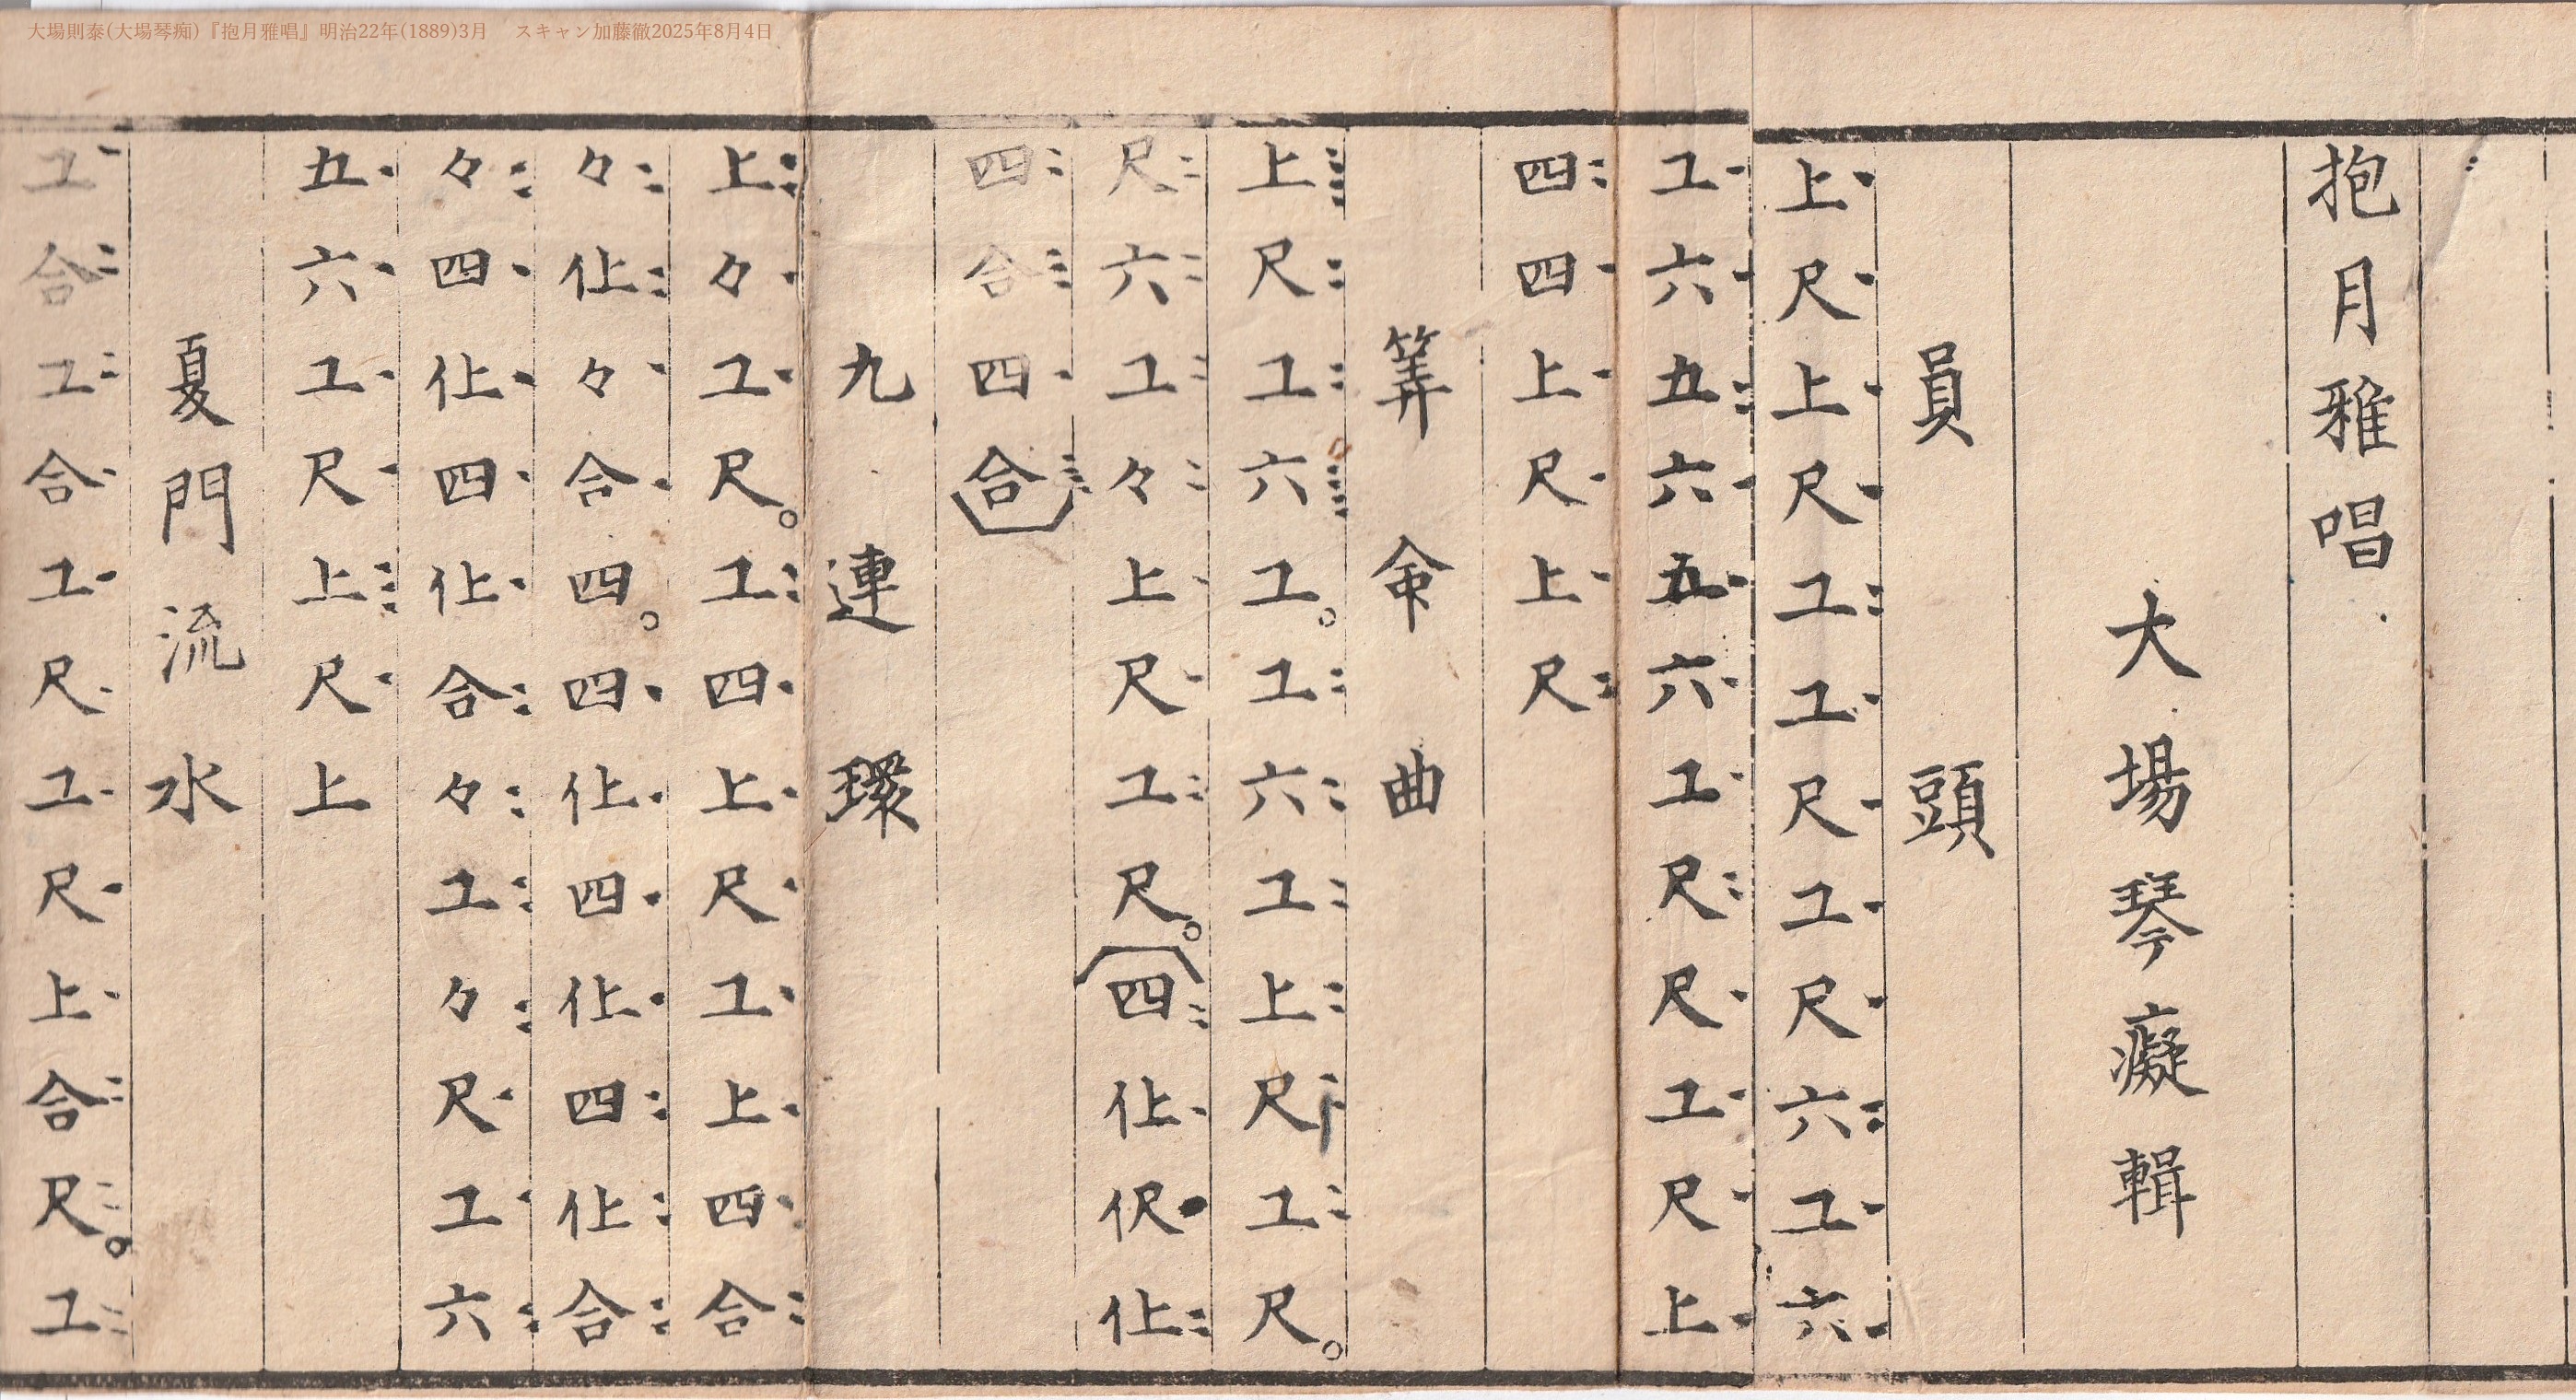 大場則泰(大場琴痴)『抱月雅唱』明治22年(1889)3月 スキャン加藤徹2025年8月4日
抱月雅唱
大場琴癡輯
員頭
上尺上尺工工尺工尺六工六
工六五六五六工尺尺工尺上
四四上尺上尺
筭命曲
上尺工六工。工六工上尺工尺。
尺六工々上尺工尺。四仩伬仩
四合四合
九連環
上々工尺。工四上尺工上四合
々仩々合四。四仩四仩四仩合
々四仩四仩合々工々尺工六
五六工尺上尺上
夏門流水
工合工合工尺工尺上合尺。工